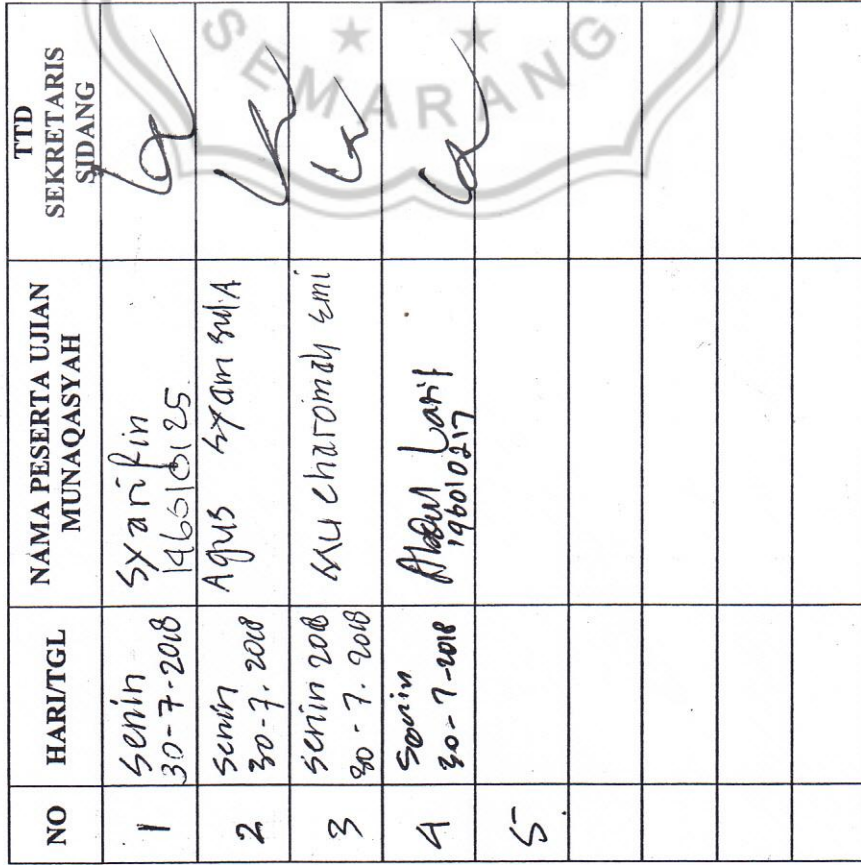 SEMARANG
NO
HARI/TGL
NAMA PESERTA UJIAN
MUNAQASYAH
TTD
SEKRETARIS
SIDANG
1
Senin
30-7-2018
Syarifin
146010125
2
Senin
30-7-2018
Agus Syamsul A
3
Senin 2018
30-7-2018
Mucharomah Emi
4
Senin
30-7-2018
Abdul Latif
196010217
5.